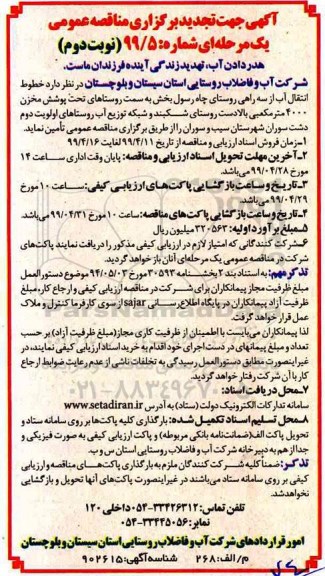 آگهی جهت تجدید برگزاری مناقصه عمومی
یک مرحله‌ای شماره: ۹۹/۵ (نوبت دوم)
هدر دادن آب، تهدید زندگی آینده فرزندان ماست.
شرکت آب و فاضلاب روستایی استان سیستان و بلوچستان در نظر دارد خطوط
انتقال آب از سه راهی روستای چاه رسول بخش به سمت روستاهای تحت پوشش مخزن
۴۰۰۰ مترمکعبی بالادست روستای شکبند و شبکه توزیع آب روستاهای اولویت دوم
دشت سوران شهرستان سیب و سوران را از طریق برگزاری مناقصه عمومی تأمین نماید.
۱-زمان فروش اسناد ارزیابی و مناقصه از تاریخ ۹۹/۴/۱۱ لغایت ۹۹/۴/۱۶
۲-آخرین مهلت تحویل اسناد ارزیابی و مناقصه: پایان وقت اداری ساعت ۱۴
مورخ ۹۹/۰۴/۲۸ می‌باشد.
۳-تاریخ و ساعت بازگشایی پاکت‌های ارزیابی کیفی: ساعت ۱۰ مورخ
۹۹/۰۴/۲۹ می‌باشد.
۴-تاریخ و ساعت بازگشایی پاکت‌های مناقصه: ساعت ۱۰ مورخ ۹۹/۰۴/۳۱ می‌باشد.
۵-مبلغ برآورد اولیه: ۳۲۰۵۶۳ میلیون ریال
۶-شرکت کنندگانی که امتیاز لازم در ارزیابی کیفی مذکور را دریافت نمایند پاکت‌های
شرکت در مناقصه عمومی یک مرحله‌ای آنان باز خواهد گردید.
تذکر مهم: به استناد بند ۲ بخشنامه ۳۰۵۹۳ مورخ ۹۴/۰۵/۰۳ موضوع دستورالعمل
ظرفیت مجاز پیمانکاران برای شرکت در مناقصه ارزیابی کیفی و ارجاع کار، مبلغ
ظرفیت آزاد پیمانکاران در پایگاه اطلاع‌رسانی sajar از سوی کارفرما کنترل و ملاک
عمل قرار خواهد گرفت.
لذا پیمانکاران می‌بایست با اطمینان از ظرفیت کاری مجاز (مبلغ ظرفیت آزاد) بر حسب
تعداد و مبلغ پیمانهای در دست اجرای خود اقدام به خرید اسناد ارزیابی کیفی نمایند، در
غیر اینصورت مطابق دستورالعمل رسیدگی به تخلفات ناشی از عدم رعایت ضوابط ارجاع
کار با آن شرکت رفتار خواهد گردید.
۷-محل دریافت اسناد:
سامانه تدارکات الکترونیک دولت (ستاد) به آدرس www.setadiran.ir
۸-محل تسلیم اسناد تکمیل شده: بارگذاری کلیه پاکت‌ها بر روی سامانه ستاد و
تحویل پاکت الف (ضمانت‌نامه بانکی مربوطه) و پاکت ارزیابی کیفی به صورت فیزیکی و
جدا از هم به دبیرخانه شرکت آب و فاضلاب روستایی استان س و ب.
تذکر: ضمنا کلیه شرکت کنندگان ملزم به بارگذاری پاکت‌های مناقصه و ارزیابی
کیفی بر روی سامانه ستاد می‌باشند در غیر اینصورت پاکت‌های آنها تحویل و بازگشایی
نخواهد شد.
تلفن تماس: ۳۳۴۲۶۳۱۲-۰۵۴ داخلی ۱۲۰
نمابر: ۳۳۴۴۵۰۵۶-۰۵۴
امور قراردادهای شرکت آب و فاضلاب روستایی استان سیستان و بلوچستان
م/الف: ۲۶۸ شناسه آگهی: ۹۰۲۶۱۵